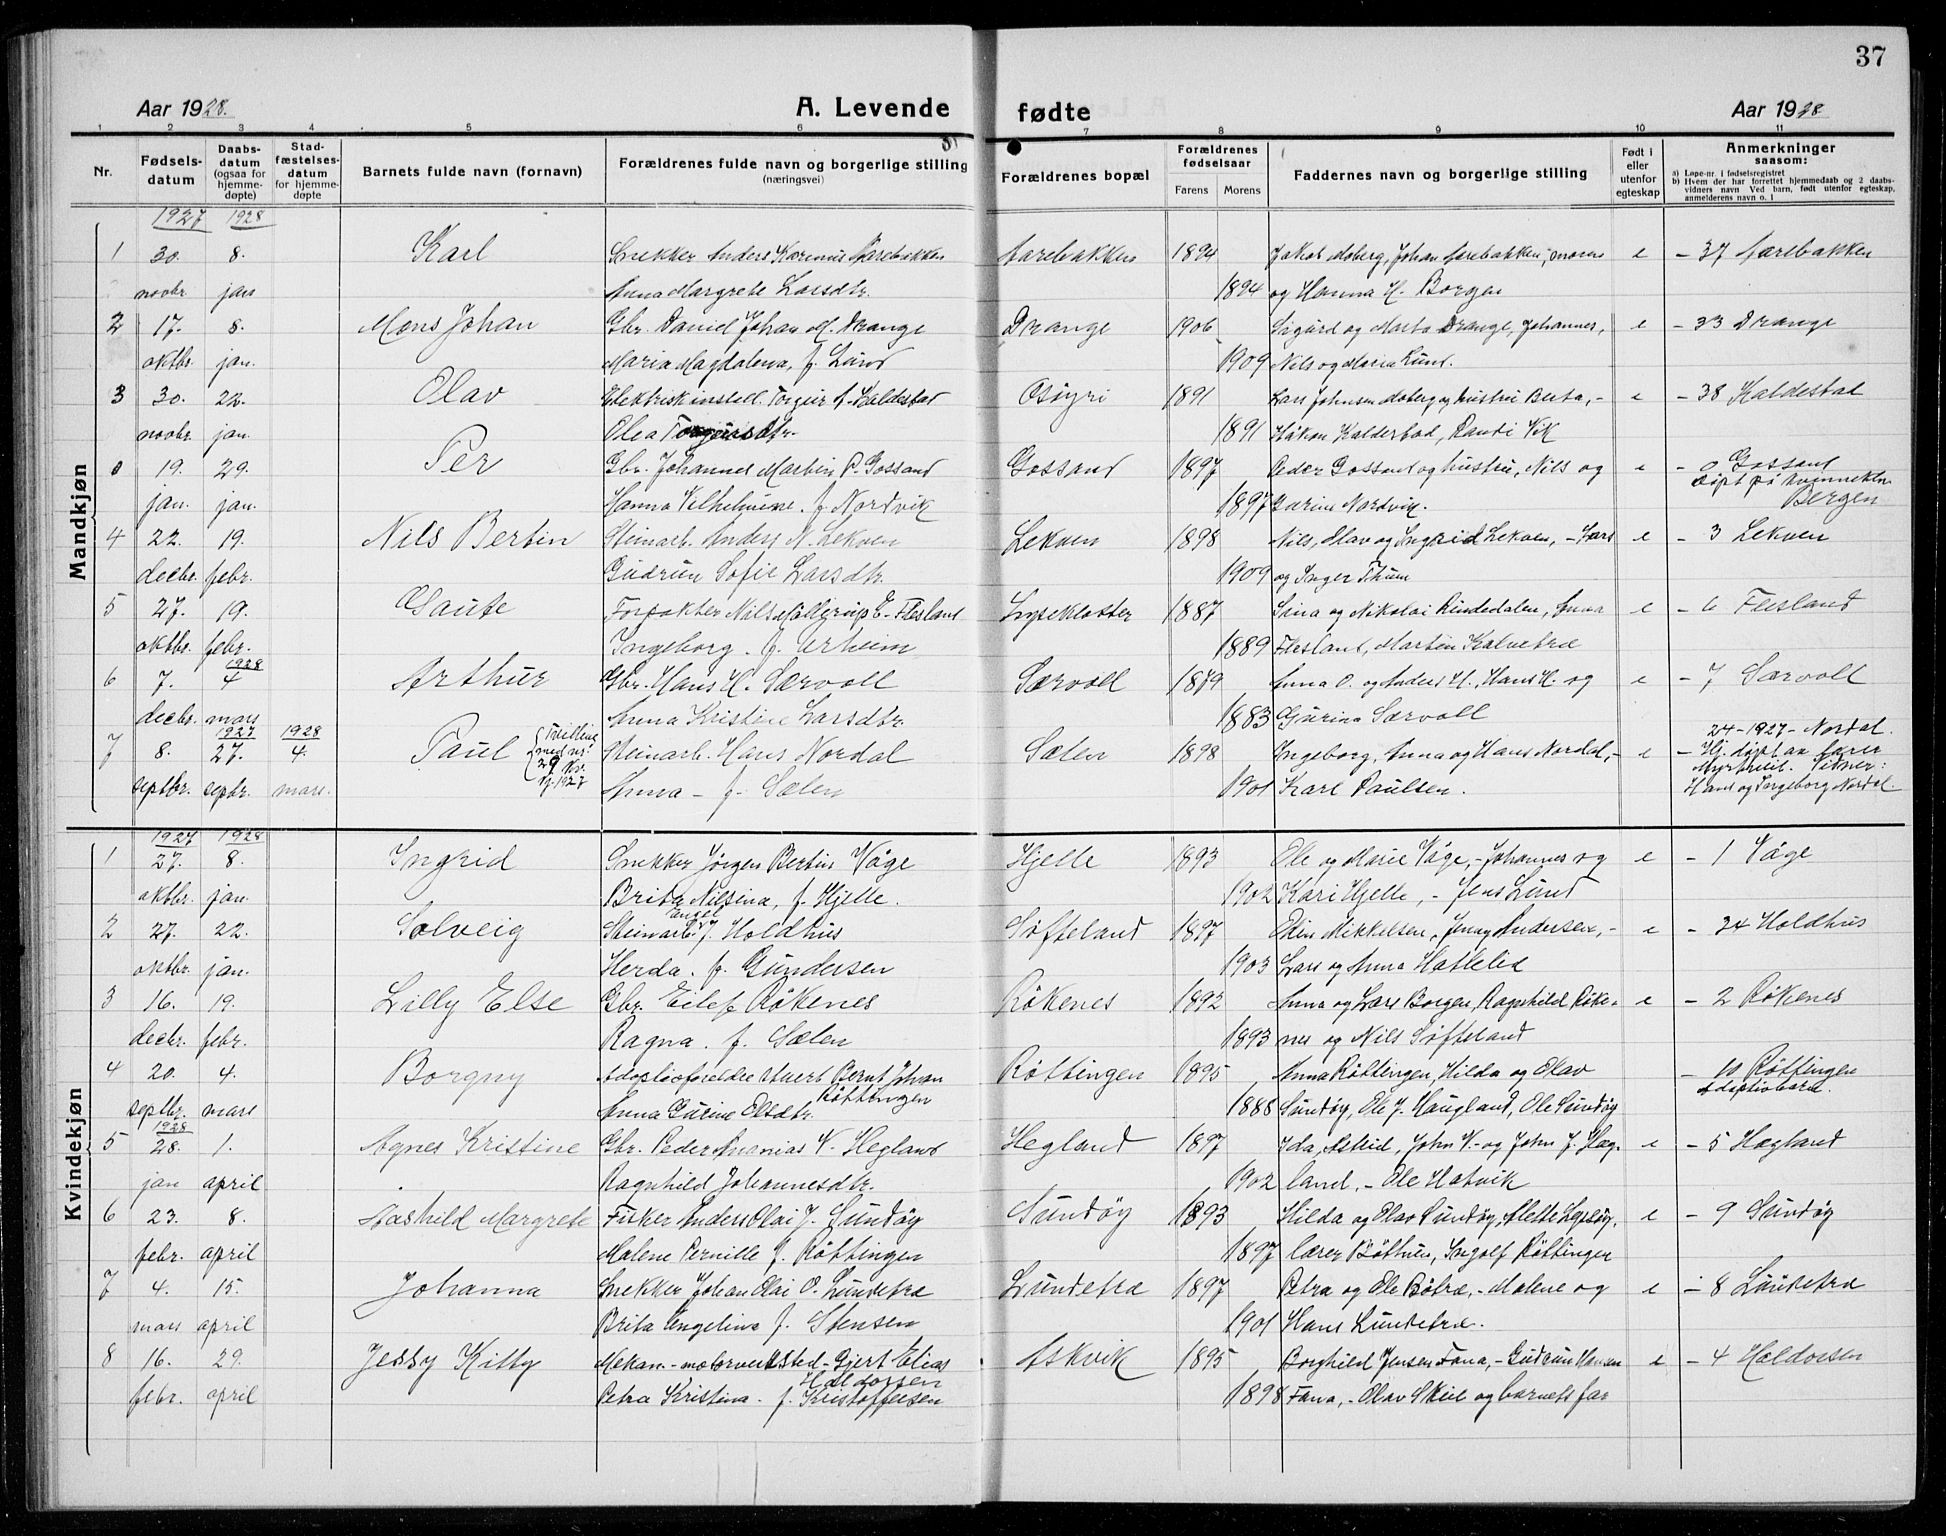 37
Aar 1928.
A. Levende
fødte
Aar 1928.
1 2 3 4 5 6 7 8 9 10 11
Nr.
Fødselsdatum
Daabsdatum (ogsaa for hjemmedøpte)
Stadfæstelsesdatum for hjemmedøpte
Barnets fulde navn (fornavn)
Forældrenes fulde navn og borgerlige stilling (næringsvei)
Forældrenes bopæl
Forældrenes fødselsaar
Farens Morens
Faddernes navn og borgerlige stilling
Født i eller utenfor egteskap
Anmerkninger saasom:
a) Løpe-nr. i fødselsregistret
b) Hvem der har forrettet hjemmedaab og 2 daabsvidners navn Ved barn, født utenfor egteskap, anmelderens navn o. l.
Mandkjøn
1927 1928
1 30. 8. Karl Snekker Anders Rasmus Aarebakken Aarebakken 1894 Jakob Moberg, Johan Aarebakken, moren e - 37 Aarebakken
novbr jan Anna Margrete Larsdtr. 1894 og Hanna H. Borgen
2 17. 8. Mons Johan Gbr. Daniel Johan M. Drange Drange 1906 Sigurd og Marta Drange, Johannes, e - 33 Drange
oktbr. jan. Maria Magdalena, f. Lund 1909 Nils og Maria Lund.
3 30. 22. Olav Elektrisk install. Torgeir A. Haldestad Osøyri 1891 Lars Johnsen Moberg og hustru Berta, - e - 38 Haldestad
novbr. jan. Olea Torgeirsdtr. 1891 Håkon Kalderbod, Randi Vik
0 19. 29. Per Gbr. Johannes Martin P. Gossand Gossand 1897 Peder Gossand og hustru, Nils og e - 0 Gossand
døpt på kvinneklin. Bergen
jan. jan. Hanna Vilhelmine. f. Nordvik 1897 Karine Nordvik.
4 22. 19. Nils Bertin Steinarb. Anders N. Lekven Lekven 1898 Nils, Olav og Ingrid Lekven, - Lars e - 3 Lekven
decbr. febr. Gudrun Sofie Larsdtr. 1909 og Inger Thum
5 27. 19. Gaute Forpakter Nils Møllerup E. Flesland Lyseklostter 1887 Sina og Nikolai Rindedalen, Anna e - 6 Flesland
oktbr. febr. Ingeborg. f. Urheim 1889 Flesland, Martin Kalvetræ
1928
6 7. 4 Arthur Gbr. Hans H. Særvoll Særvoll 1879 Anna O. og Anders H., Hans H. og e - 7 Særvoll
decbr. mars Anna Kristine Larsdtr. 1883 Gurina Særvoll
1927 1928
7 8. 27. 4. Paul Steinarb. Hans Nordal Sælen 1898 Ingeborg, Anna og Hans Nordal, - e 24-1927- Nordal.
- Hj. døpt av lærer Myrtveit. Vidner: Hans og Ingeborg Nordal.
septbr. septbr. mars. Anna - f. Sælen 1901 Karl Paulsen.
Kvindekjøn
1927 1928
1 27. 8. Ingrid Snekker Jørgen Bertin Våge Hjelle 1893 Ole og Marie Våge, - Johannes og e - 1 Våge
oktbr. jan. Brita Nilsina, f. Hjelle. 1902 Kari Hjelle, - Jens Lund
2 27. 22. Solveig Steinarb. Engel J. Holdhus Søfteland 1897 Edin Mikkelsen, Jenny Andersen, - e - 34 Holdhus
oktbr. jan. Herda. f. Gundersen 1903 Lars og Anna Hattelid
3 16. 19. Lilly Else Gbr. Eilef Røkenes Røkenes 1892 Anna og Lars Borgen, Ragnhild Røke- e - 2 Røkenes
decbr. febr. Ragna. f. Sælen 1893 nes og Nils Søfteland
4 20. 4. Borgny Adoptivforeldre Bernt Johan Røttingen Røttingen 1895 Anna Røttingen, Hilda og Olav - 10 Røttingen
Adoptivbarn.
septbr. mars Anna Gurine Elsdtr. 1888 Sundøy, Ole J. Haugland, Ole Sundøy
1928
5 28. 1. Agnes Kristine Gbr. Peder Ananias V. Hegland Hegland 1897 Ida, Astrid, John V. og John J. Hæg- e - 5 Hægland
jan april Ragnhild Johannesdtr. 1902 land, - Ole Hatvik
6 23. 8. Aashild Margrete Fisker Anders Olai J. Sundøy Sundøy 1893 Hilda og Olav Sundøy, Mette Lepsøy, e - 9 Sundøy
febr. april Malene Pernille f. Røttingen 1897 lærer Bøthun, Ingolf Røttingen
7 4. 15. Johanna Snekker Johan Olai O. Lundetræ Lundetræ 1897 Petra og Ole Bøtræ, - Malene og e - 8 Lundetræ
mars april Brita Engelina f. Stensen 1901 Hans Lundetræ.
8 16. 29. Jessy Kitty Mekan. - motorverksted - Gjert Elias Haldorsen Askvik 1895 Borghild Jensen Fana, - Gudrun Hansen e - 4 Haldorsen
febr. april Petra Kristina. f. Kristoffersen 1898 Fana, - Olav Skeie og barnets far